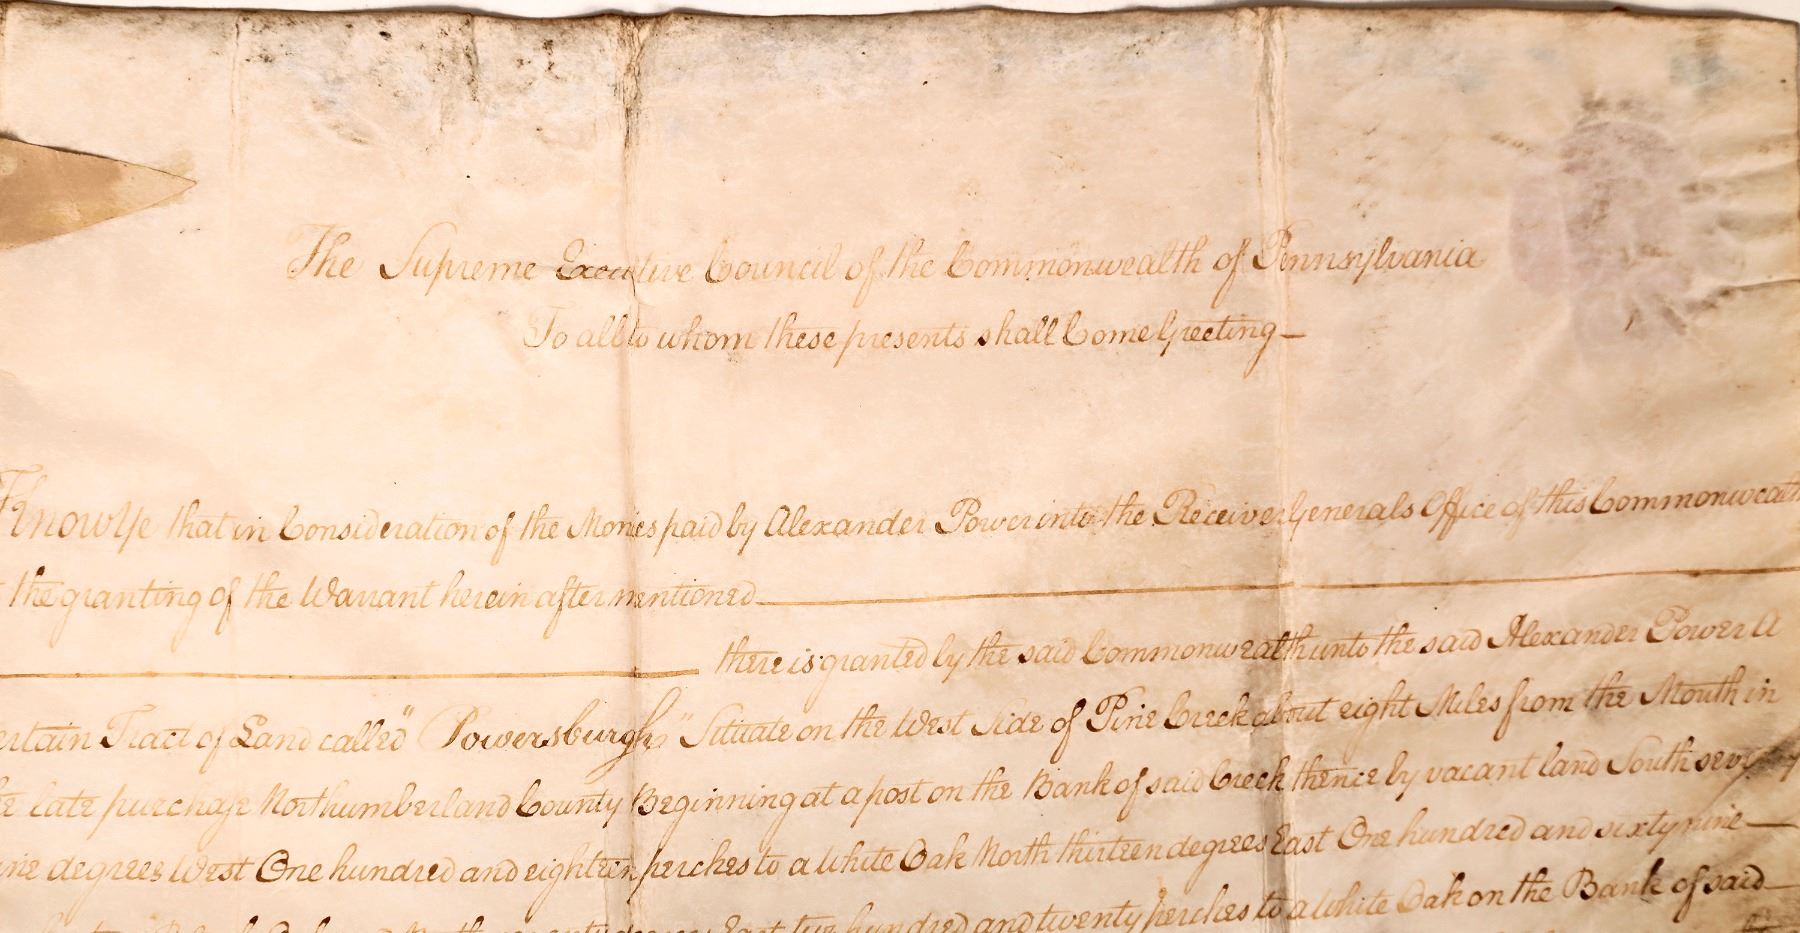 The Supreme Executive Council of the Commonwealth of Pennsylvania
To all to whom these presents shall Come Greeting—
Know Ye that in Consideration of the Monies paid by Alexander Power into the Receiver Generals Office of this Commonwealth
the granting of the Warrant herein after mentioned
there is granted by the said Commonwealth unto the said Alexander Power A
ertain Tract of Land called "Powersburgh" Situate on the West Side of Pine Creek about eight Miles from the Mouth in
late purchase Northumberland County Beginning at a post on the Bank of said Creek thence by vacant land South seventy
ine degrees West One hundred and eighteen perches to a White Oak North thirteen degrees East One hundred and sixty nine—
East two hundred and twenty perches to a White Oak on the Bank of said—